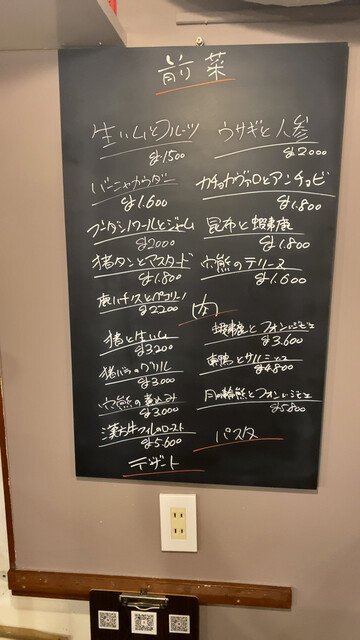 前菜
生ハムとフルーツ
¥1500
ウサギと人参
¥2000
バーニャカウダー
¥1.600
カチョカヴァロとアンチョビ
¥1.800
ブーダンノワールとジャム
¥2000
昆布と蝦夷鹿
¥1.800
猪タンとマスタード
¥1.800
穴熊のテリーヌ
¥1.600
鹿ハチノスと
¥2200
肉
猪と生ハム
¥3200
蝦夷鹿とフォン・ド・
¥3.600
猪バラのグリル
¥3.000
東鴨とサルミソース
¥4.800
穴熊の煮込み
¥3.000
月の輪熊とフォン・ド・
¥5800
漢方牛フィレのロースト
¥5.600
パスタ
デザート